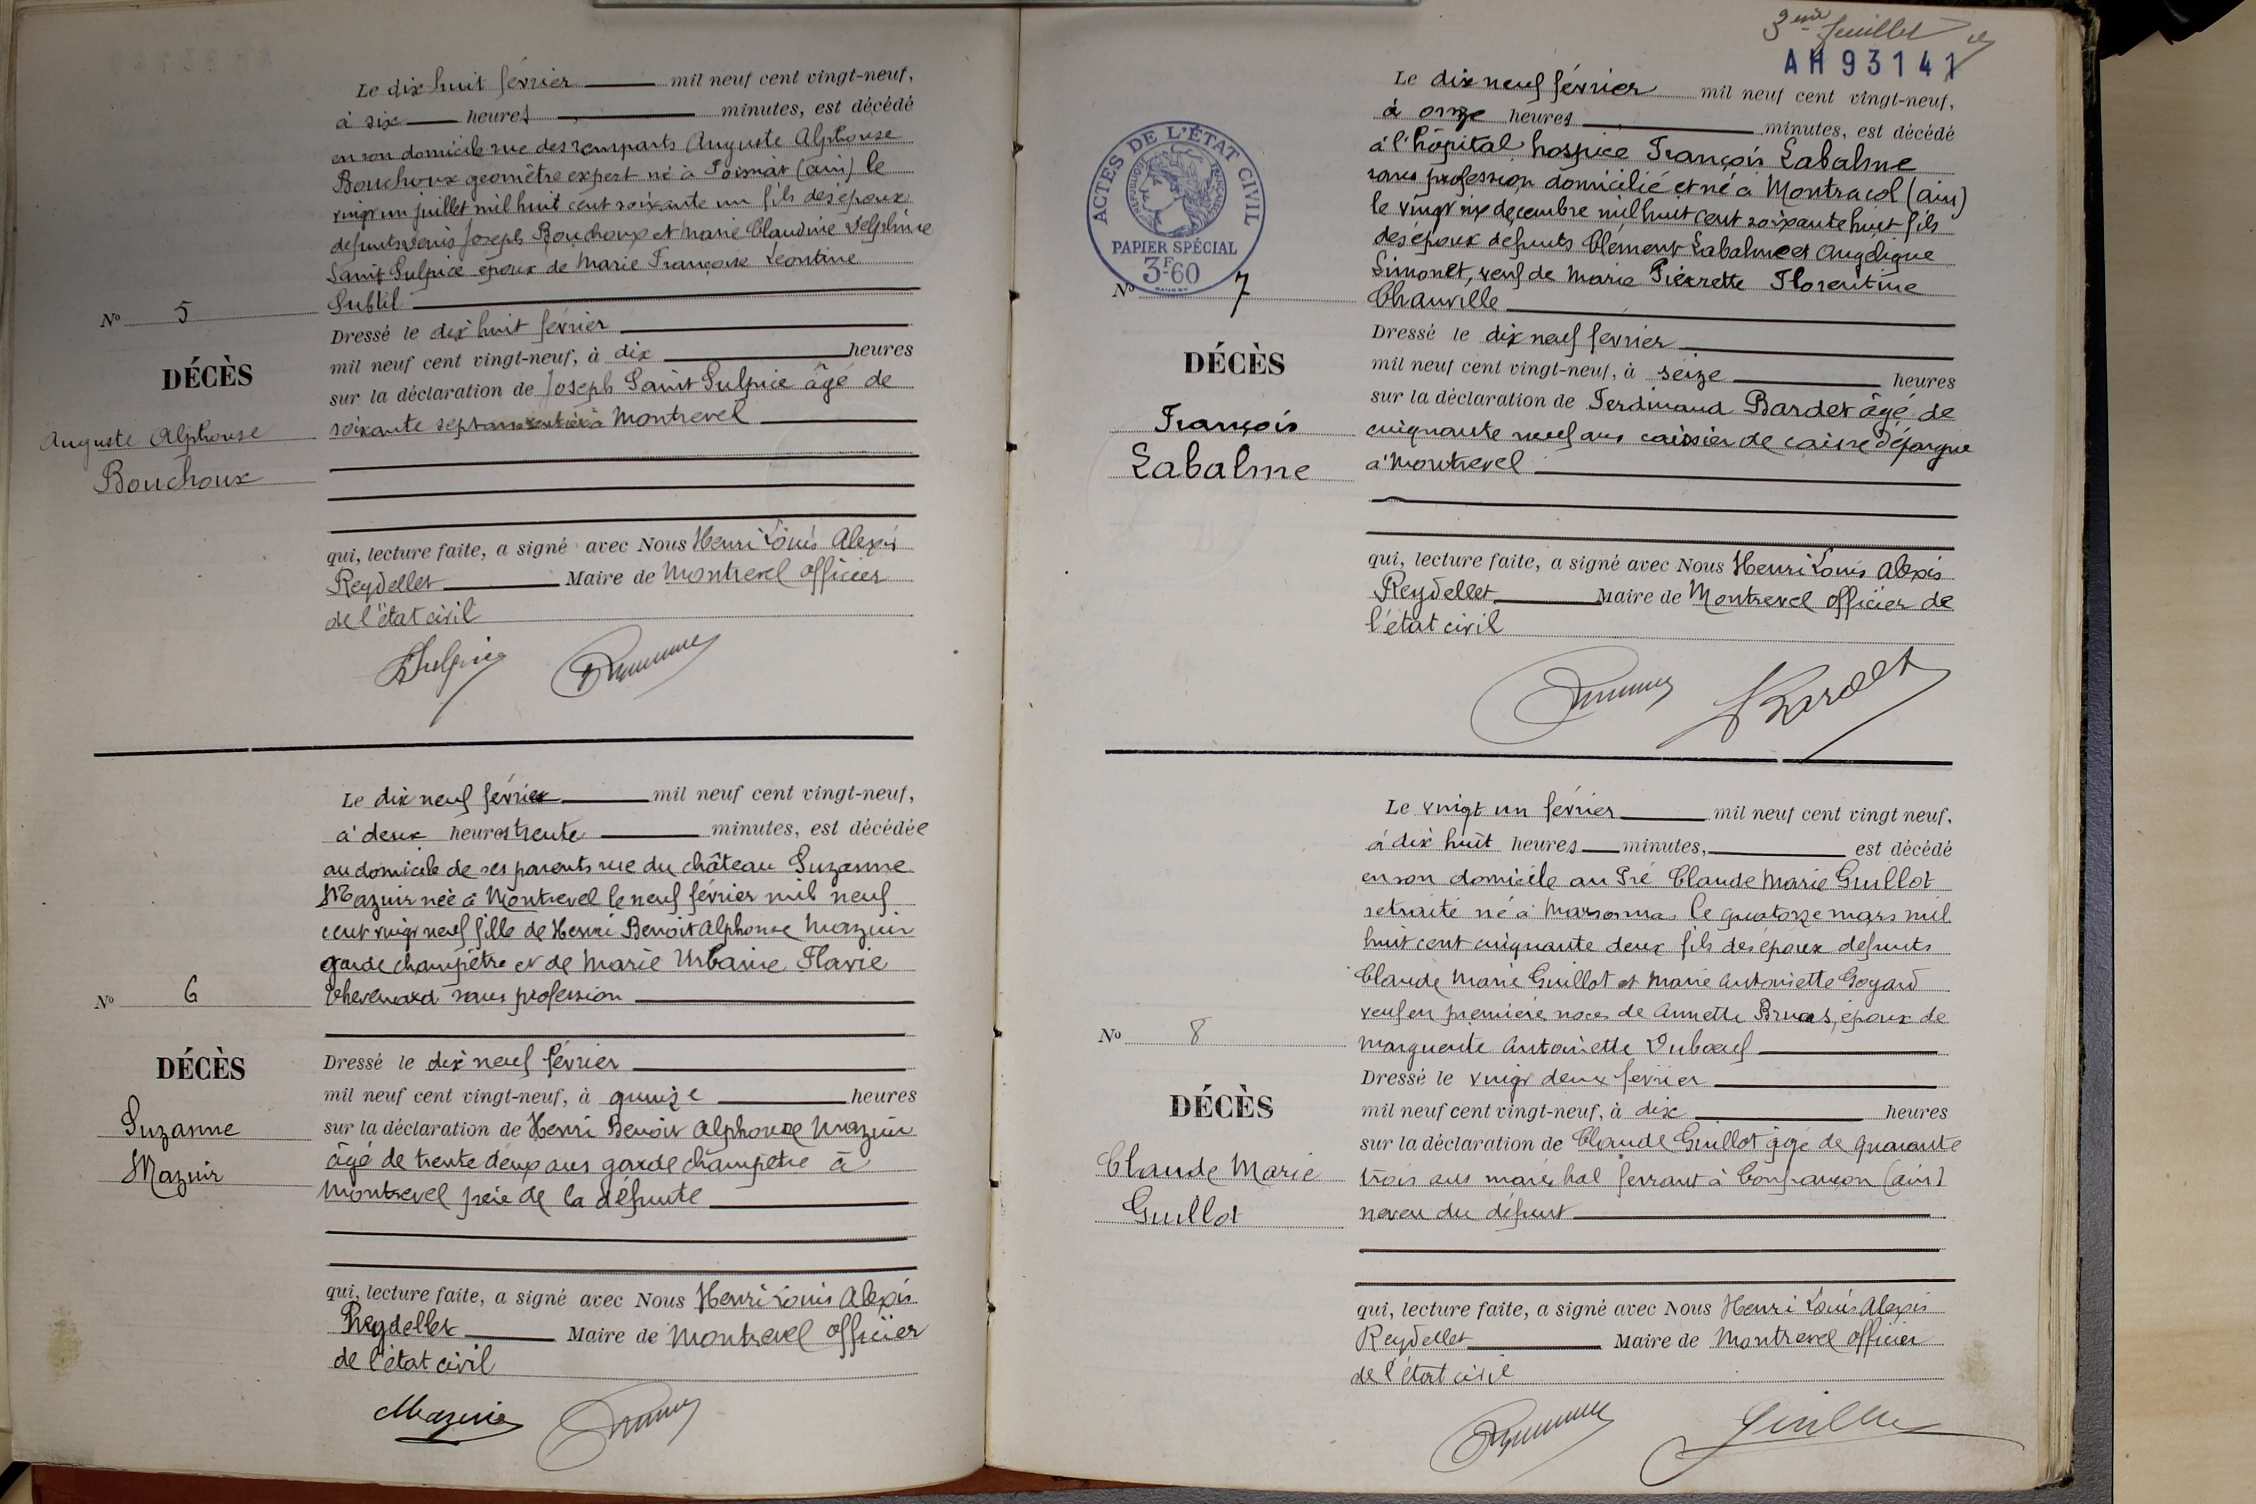 Le dix huit février mil neuf cent vingt-neuf,
à six heures minutes, est décédé
en son domicile rue des remparts Auguste Alphonse
Bouchoux geomètre expert né à Foissiat (ain) le
vingt un juillet mil huit cent soixante un fils des époux
defunts Denis Joseph Bouchoux et Marie Claudine Delphine
Saint Sulpice époux de Marie Françoise Léontine
Subtil
Nº 5
DÉCÈS
Auguste Alphonse
Bouchoux
Dressé le dix huit février
mil neuf cent vingt-neuf, à dix heures
sur la déclaration de Joseph Saint Sulpice âgé de
soixante sept ans rentier à Montrevel
qui, lecture faite, a signé avec Nous Henri Louis Alexis
Reydellet Maire de Montrevel officier
de l'état civil
Le dix neuf février mil neuf cent vingt-neuf,
à deux heures trente minutes, est décédée
au domicile de ses parents rue du château Suzanne
Mazuir née à Montrevel le neuf février mil neuf
cent vingt neuf fille de Henri Benoit Alphonse Mazuir
garde champêtre et de Marie Urbanie Flavie
Thevenard sans profession
Nº 6
DÉCÈS
Suzanne
Mazuir
Dressé le dix neuf février
mil neuf cent vingt-neuf, à quinze heures
sur la déclaration de Henri Benoit Alphonse Mazuir
âgé de trente deux ans garde champêtre à
Montrevel père de la défunte
qui, lecture faite, a signé avec Nous Henri Louis Alexis
Reydellet Maire de Montrevel officier
de l'état civil
Mazuir
3ème feuillet
AH93141
Le dix neuf février mil neuf cent vingt-neuf,
à onze heures minutes, est décédé
à l'hôpital hospice François Labalme
sans profession domicilié et né à Montracol (ain)
le vingt six décembre mil huit cent soixante huit fils
des époux défunts Clément Labalme et Angélique
Simonet, veuf de Marie Pierrette Florentine
Chanville
ACTES DE L'ÉTAT CIVIL
RÉPUBLIQUE FRANÇAISE
PAPIER SPÉCIAL
3F60
Nº 7
DÉCÈS
François
Labalme
Dressé le dix neuf février
mil neuf cent vingt-neuf, à seize heures
sur la déclaration de Ferdinand Bardet âgé de
cinquante neuf ans caissier de caisse d'épargne
à Montrevel
qui, lecture faite, a signé avec Nous Henri Louis Alexis
Reydellet Maire de Montrevel officier de
l'état civil
Bardet
Le vingt un février mil neuf cent vingt neuf,
à dix huit heures minutes, est décédé
en son domicile au Pré Claude Marie Guillot
retraité né à Marsonnas le quatorze mars mil
huit cent cinquante deux fils des époux defunts
Claude Marie Guillot et Marie Antoinette Goyard
veuf en première noces de Annette Bruas, époux de
Marguerite Antoinette Duboeuf
Nº 8
DÉCÈS
Claude Marie
Guillot
Dressé le vingt deux février
mil neuf cent vingt-neuf, à dix heures
sur la déclaration de Claude Guillot âgé de quarante
trois ans maréchal ferrant à Confrançon (ain)
neveu du défunt
qui, lecture faite, a signé avec Nous Henri Louis Alexis
Reydellet Maire de Montrevel officier
de l'état civil
Guillot